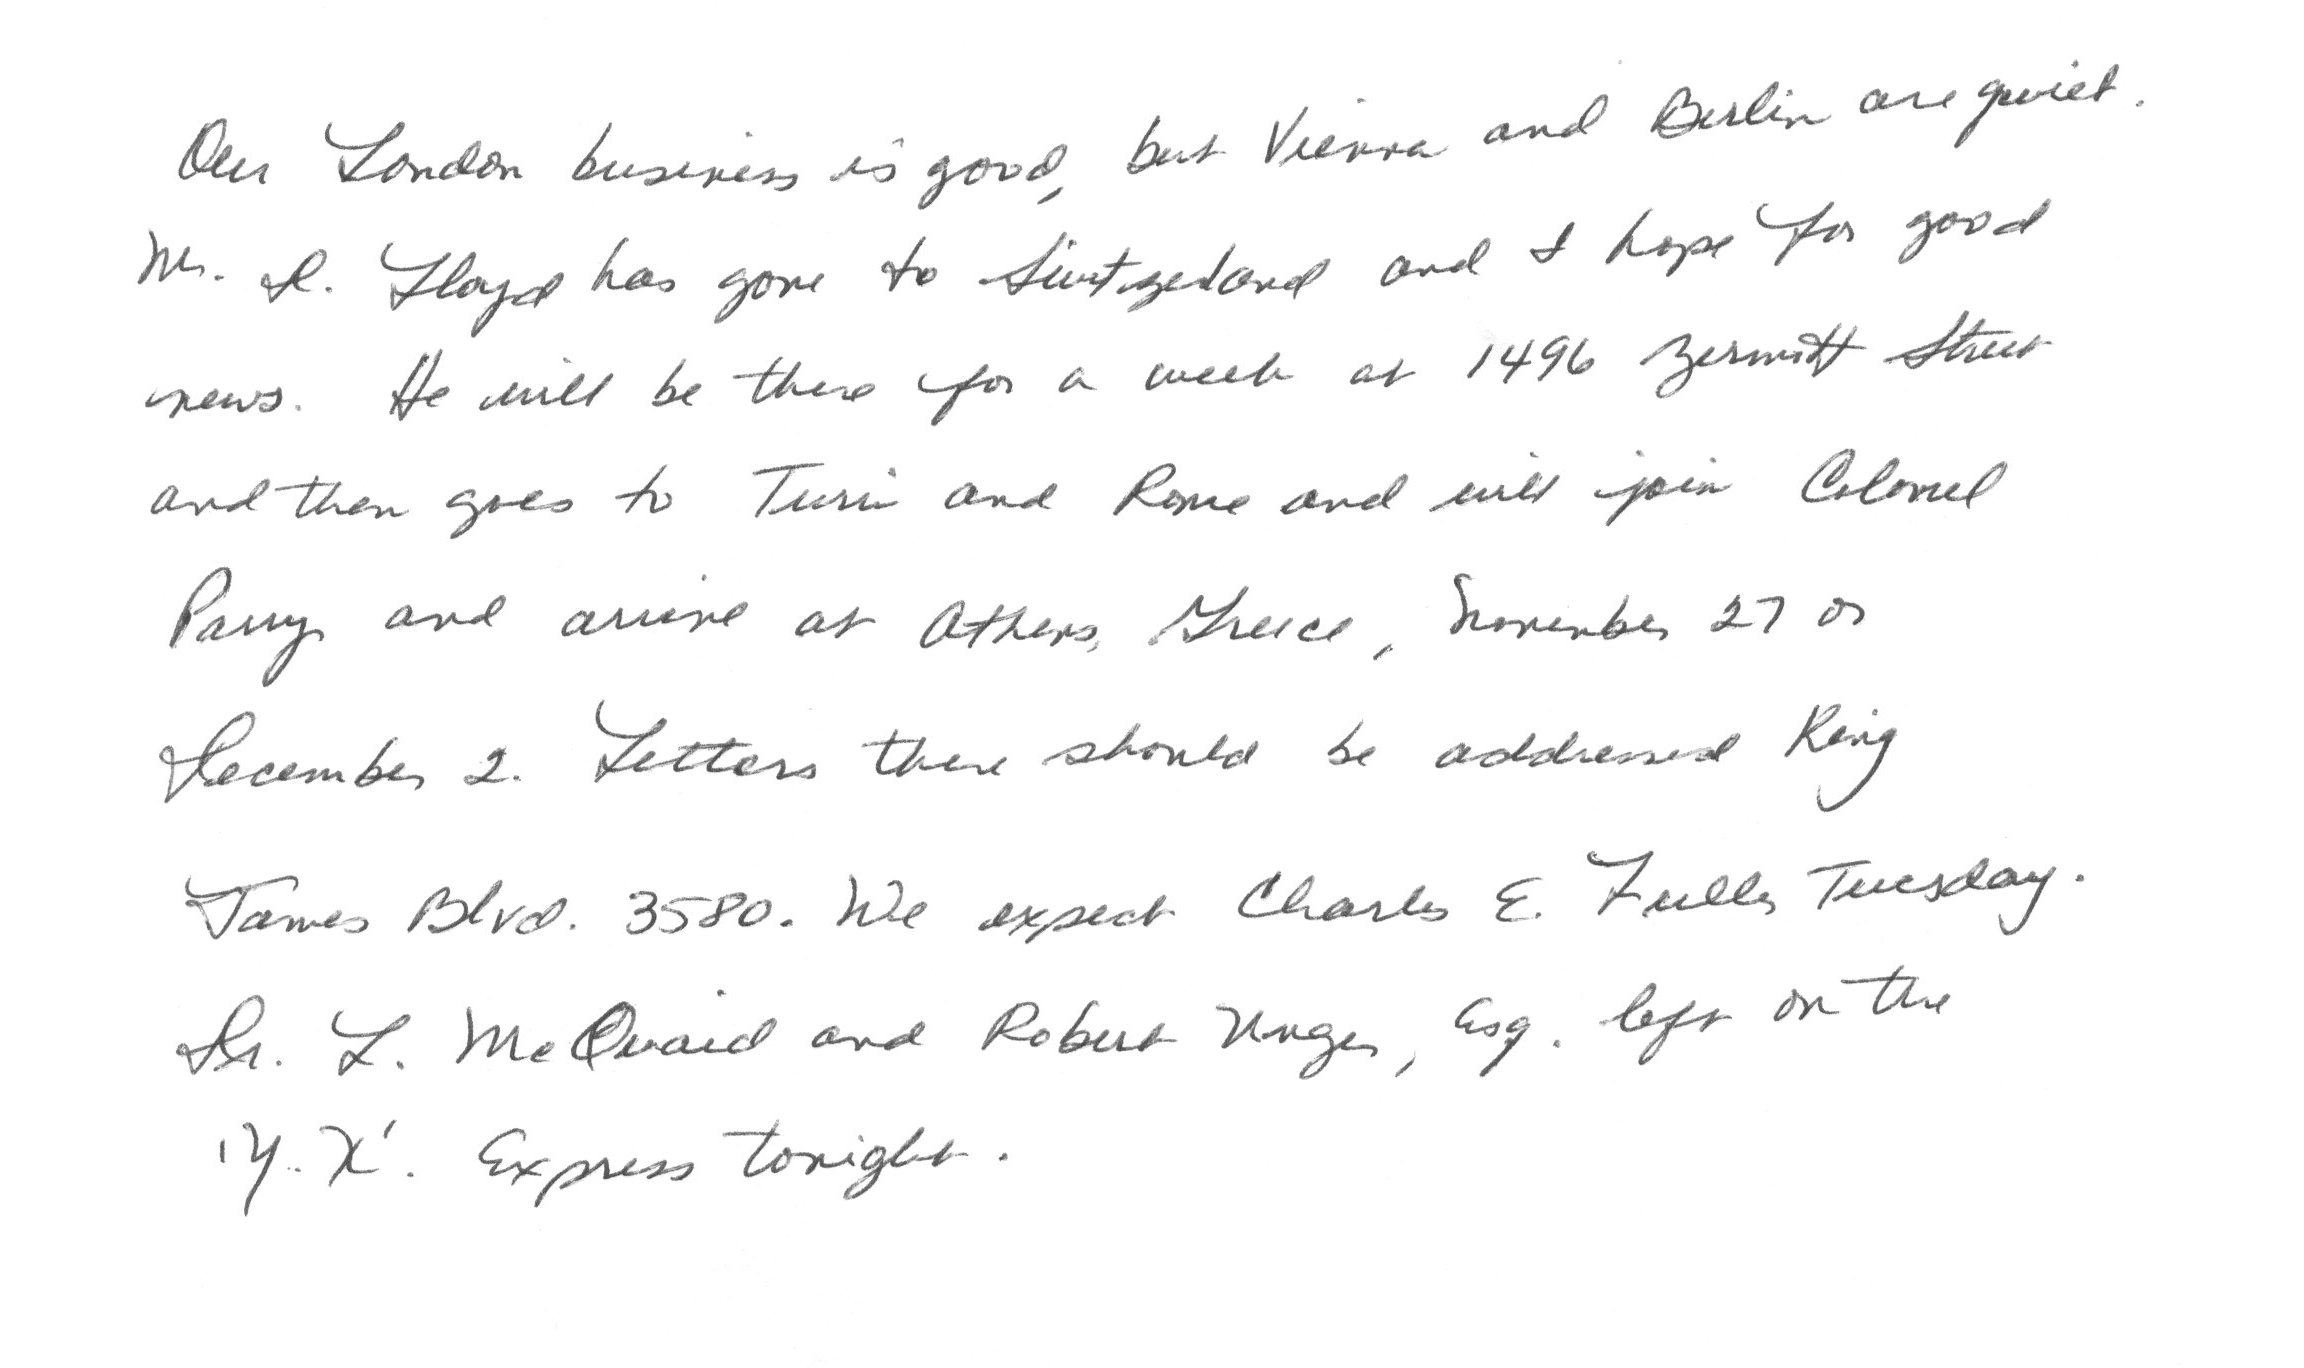 Our London business is good, but Vienna and Berlin are quiet.
Mr. D. Lloyd has gone to Switzerland and I hope for good
news. He will be there for a week at 1496 Zermott Street
and then goes to Turin and Rome and will join Colonel
Parry and arrive at Athens, Greece, November 27 or
December 2. Letters there should be addressed King
James Blvd. 3580. We expect Charles E. Fuller Tuesday.
Dr. L. McQuaid and Robert Unger, Esq. left on the
'Y. X'. Express tonight.